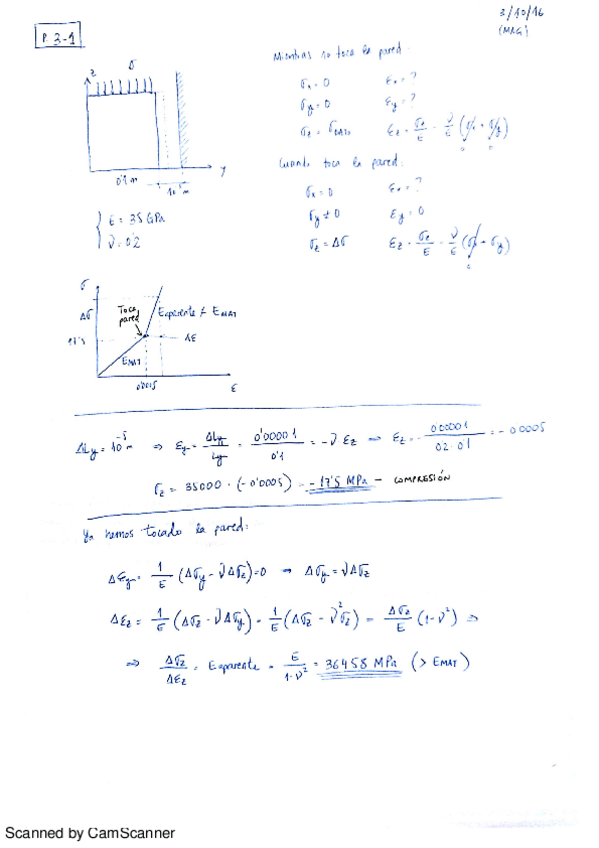 3/10/16
(MRG)
P. 3-1
Mientras no toca la pared:
σx = 0 εx = ?
σy = 0 εy = ?
σz = σ εz = σz/E - ν/E (σx + σy)
0 0
Cuando toca la pared:
σx = 0 εx = ?
σy ≠ 0 εy = 0
σz = Δσ εz = σz/E - ν/E (σx + σy)
0
σ
z
y
0'1 m
10⁻⁵ m
{ E = 35 GPa
ν = 0'2
σ
Δσ
Toca pared
Eaparente ≠ EMAT
17'5
Δε
EMAT
ε
ΔLy = 10⁻⁵ m ⇒ εy = ΔLy/Ly = 0'00001/0'1 = -ν εz ⇒ εz = - 0'00001/0'2·0'1 = -0'0005
σz = 35000 · (-0'0005) = -17'5 MPa - COMPRESIÓN
Ya hemos tocado la pared:
Δεy = 1/E (Δσy - νΔσz) = 0 ⇒ Δσy = νΔσz
Δεz = 1/E (Δσz - νΔσy) = 1/E (Δσz - ν²σz) = Δσz/E (1-ν²) ⇒
⇒ Δσz/Δεz = Eaparente = E/1-ν² = 36458 MPa (> EMAT)
Scanned by CamScanner